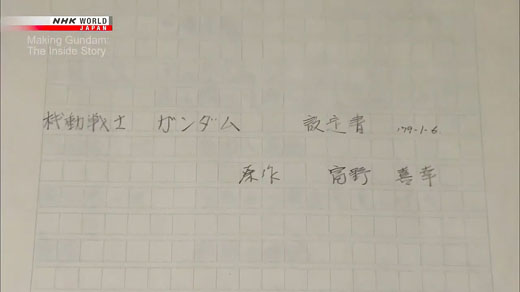 NHK WORLD
JAPAN
Making Gundam:
The Inside Story
機動戦士 ガンダム 設定書 '79-1-6.
原作 富野 喜幸